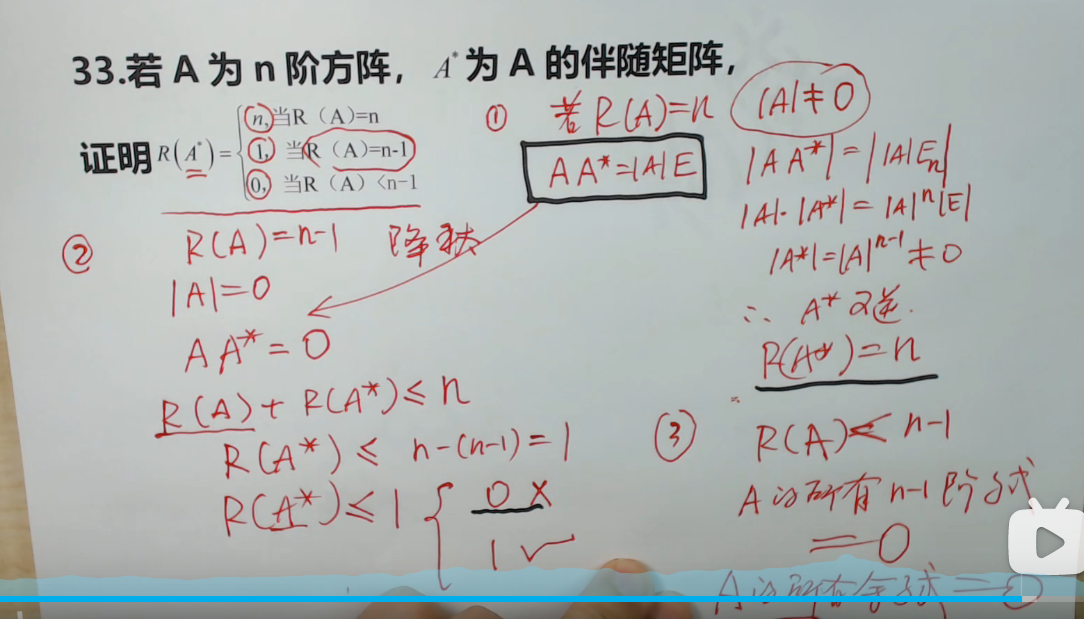 33.若 A 为 n 阶方阵，A*为 A 的伴随矩阵，
证明 R(A*)=
n, 当R（A)=n
1, 当R（A)=n-1
0, 当R（A）<n-1
① 若 R(A)=n |A|≠0
AA*=|A|E
|AA*|=||A|Eₙ|
|A|·|A*|=|A|ⁿ|E|
|A*|=|A|ⁿ⁻¹≠0
∴ A*可逆.
R(A*)=n
② R(A)=n-1 降秩
|A|=0
AA*=0
R(A)+R(A*)≤n
R(A*)≤ n-(n-1)=1
R(A*)≤1 { 0 ×
1 ✓
③ R(A)<n-1
A的所有n-1阶子式
=0
A的所有余子式=0